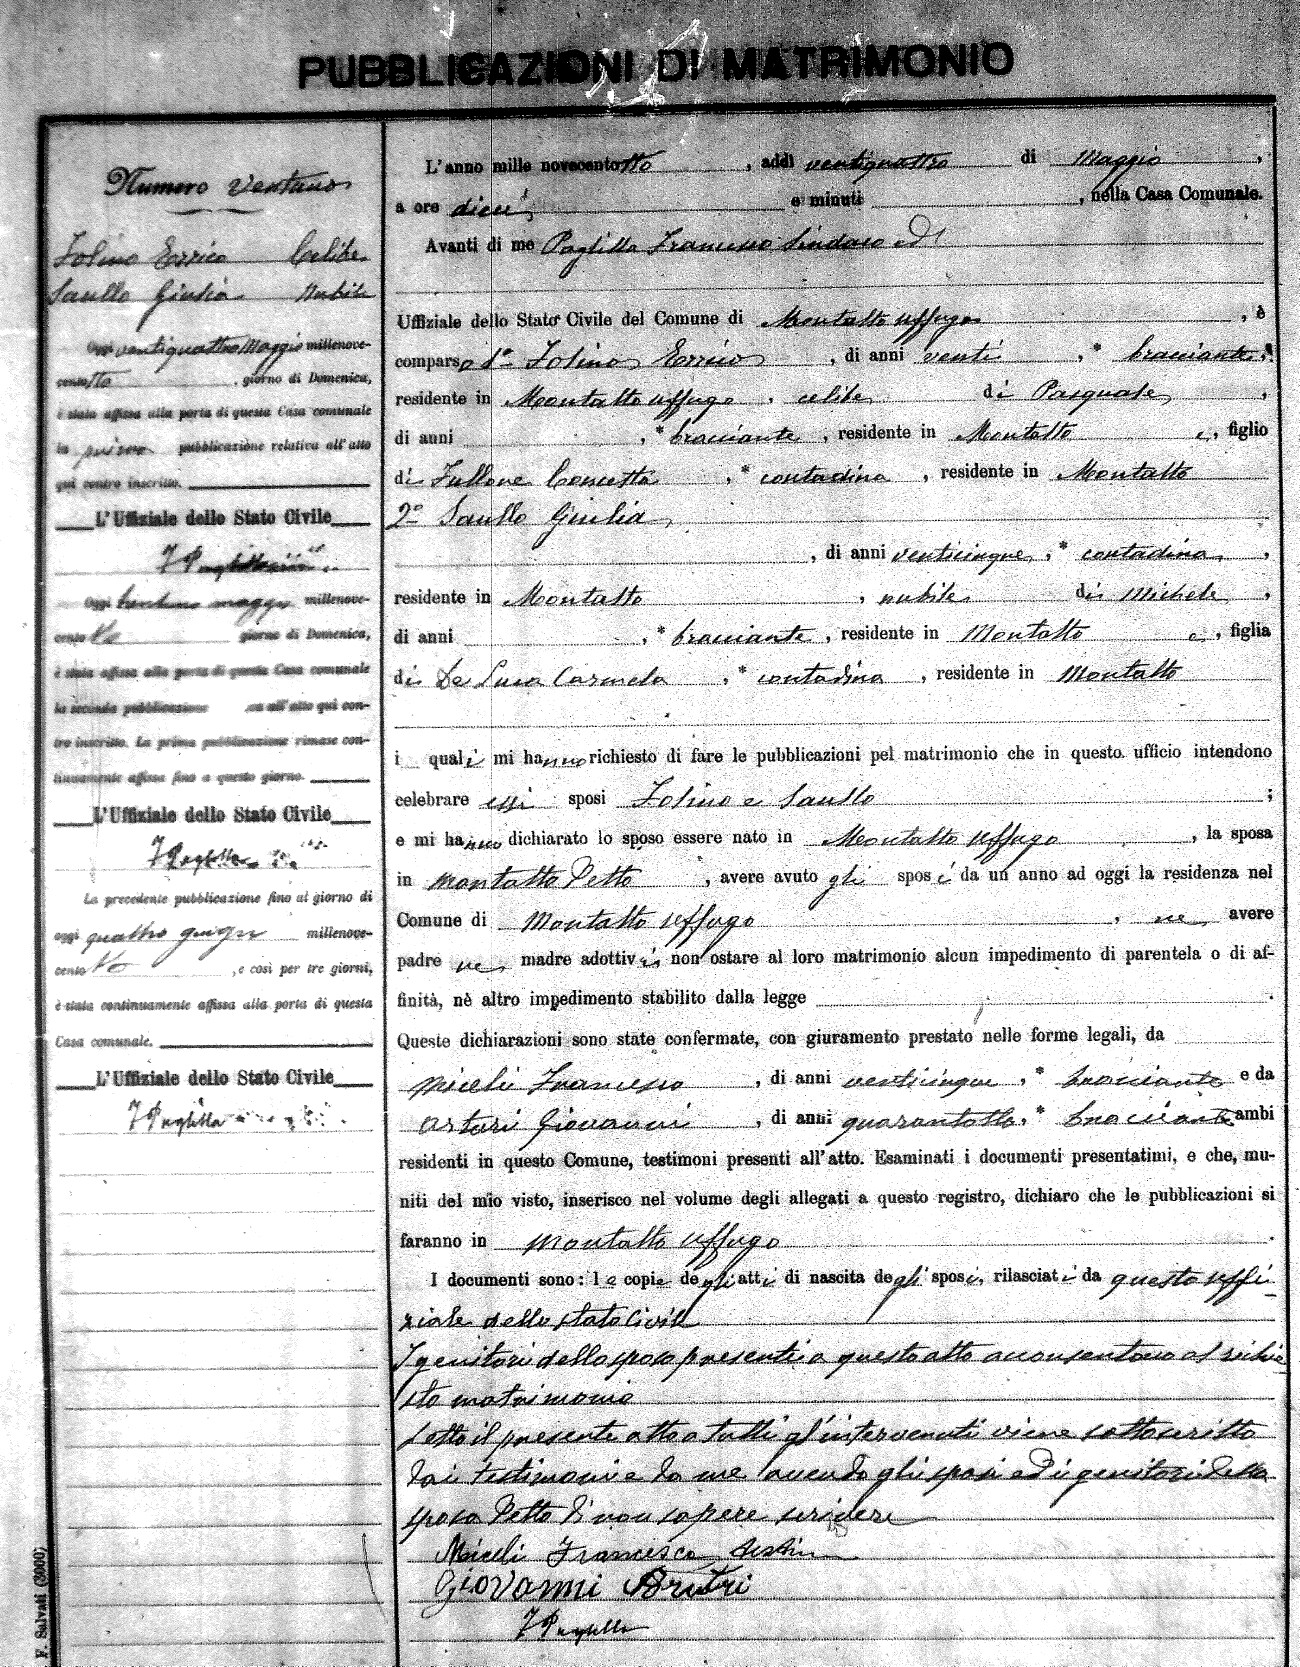 PUBBLICAZIONI DI MATRIMONIO
Numero ventuno
Folino Errico Celibe
Saullo Giulia Nubile
Oggi ventiquattro Maggio millenove-
cento otto, giorno di Domenica,
è stata affissa alla porta di questa Casa comunale
la prima pubblicazione relativa all'atto
qui contro inscritto.
L'Uffiziale dello Stato Civile
F Puglilla
Oggi trentuno maggio millenove-
cento otto giorno di Domenica,
è stata affissa alla porta di questa Casa comunale
la seconda pubblicazione all'atto qui con-
tro inscritto. La prima pubblicazione rimase con-
tinuamente affissa fino a questo giorno.
L'Uffiziale dello Stato Civile
F Puglilla
La precedente pubblicazione fino al giorno di
oggi quattro giugno millenove-
cento otto, e così per tre giorni,
è stata continuamente affissa alla porta di questa
Casa comunale.
L'Uffiziale dello Stato Civile
F Puglilla
L'anno mille novecentotto, addì ventiquattro di Maggio,
a ore dieci, e minuti, nella Casa Comunale.
Avanti di me Puglilla Francesco Sindaco ed
Uffiziale dello Stato Civile del Comune di Montalto Uffugo, è
comparso 1º Folino Errico, di anni venti, * bracciante,
residente in Montalto Uffugo, celibe di Pasquale,
di anni, * bracciante, residente in Montalto e, figlio
di Fullone Concetta, * contadina, residente in Montalto
2º Saullo Giulia,
, di anni venticinque, * contadina,
residente in Montalto, nubile di Michele,
di anni, * bracciante, residente in Montalto e, figlia
di De Luca Carmela, * contadina, residente in Montalto
i quali mi hanno richiesto di fare le pubblicazioni pel matrimonio che in questo ufficio intendono
celebrare essi sposi Folino e Saullo;
e mi hanno dichiarato lo sposo essere nato in Montalto Uffugo, la sposa
in Montalto Detto, avere avuto gli sposi da un anno ad oggi la residenza nel
Comune di Montalto Uffugo, ne avere
padre ne madre adottivi; non ostare al loro matrimonio alcun impedimento di parentela o di af-
finità, nè altro impedimento stabilito dalla legge.
Queste dichiarazioni sono state confermate, con giuramento prestato nelle forme legali, da
Miceli Francesco, di anni venticinque, * bracciante e da
Arturi Giovanni, di anni quarantotto, * bracciante ambi
residenti in questo Comune, testimoni presenti all'atto. Esaminati i documenti presentatimi, e che, mu-
niti del mio visto, inserisco nel volume degli allegati a questo registro, dichiaro che le pubblicazioni si
faranno in Montalto Uffugo.
I documenti sono: le copie degli atti di nascita degli sposi, rilasciati da questo uffi-
ziale dello stato Civile
I genitori dello sposo presenti a questo atto acconsentono al richie
sto matrimonio
Letto il presente atto a tutti gl'intervenuti viene sottoscritto
dai testimoni e da me avendo gli sposi ed i genitori dello
sposo Detto di non sapere scrivere
Miceli Francesco
Giovanni Arturi
F Puglilla
F. Salvati (3000)